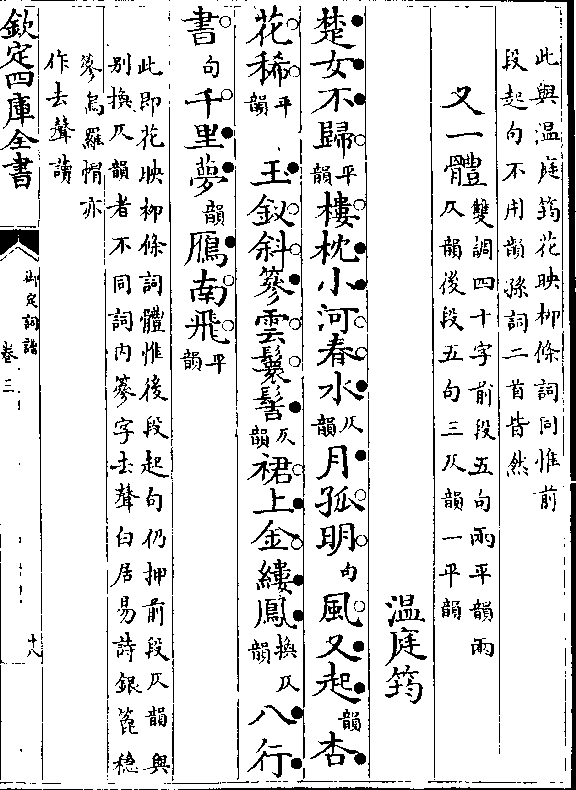 此與温庭筠花映柳條詞同惟前
段起句不用韻孫詞二首皆然
又一體雙調四十字前段五句兩平韻兩
仄韻後段五句三仄韻一平韻
温庭筠
楚女不歸平韻樓枕小河春水仄韻月孤明句風又起韻杏
花稀平韻　玉釵斜篸雲鬟髻仄韻裙上金縷鳳換仄韻八行
書句千里夢韻鴈南飛平韻
此即花映柳條詞體惟後段起句仍押前段仄韻與
别換仄韻者不同詞内篸字去聲白居易詩銀篦穏
篸烏羅帽亦
作去聲讀
欽定四庫全書
御定詞譜
卷三
十八